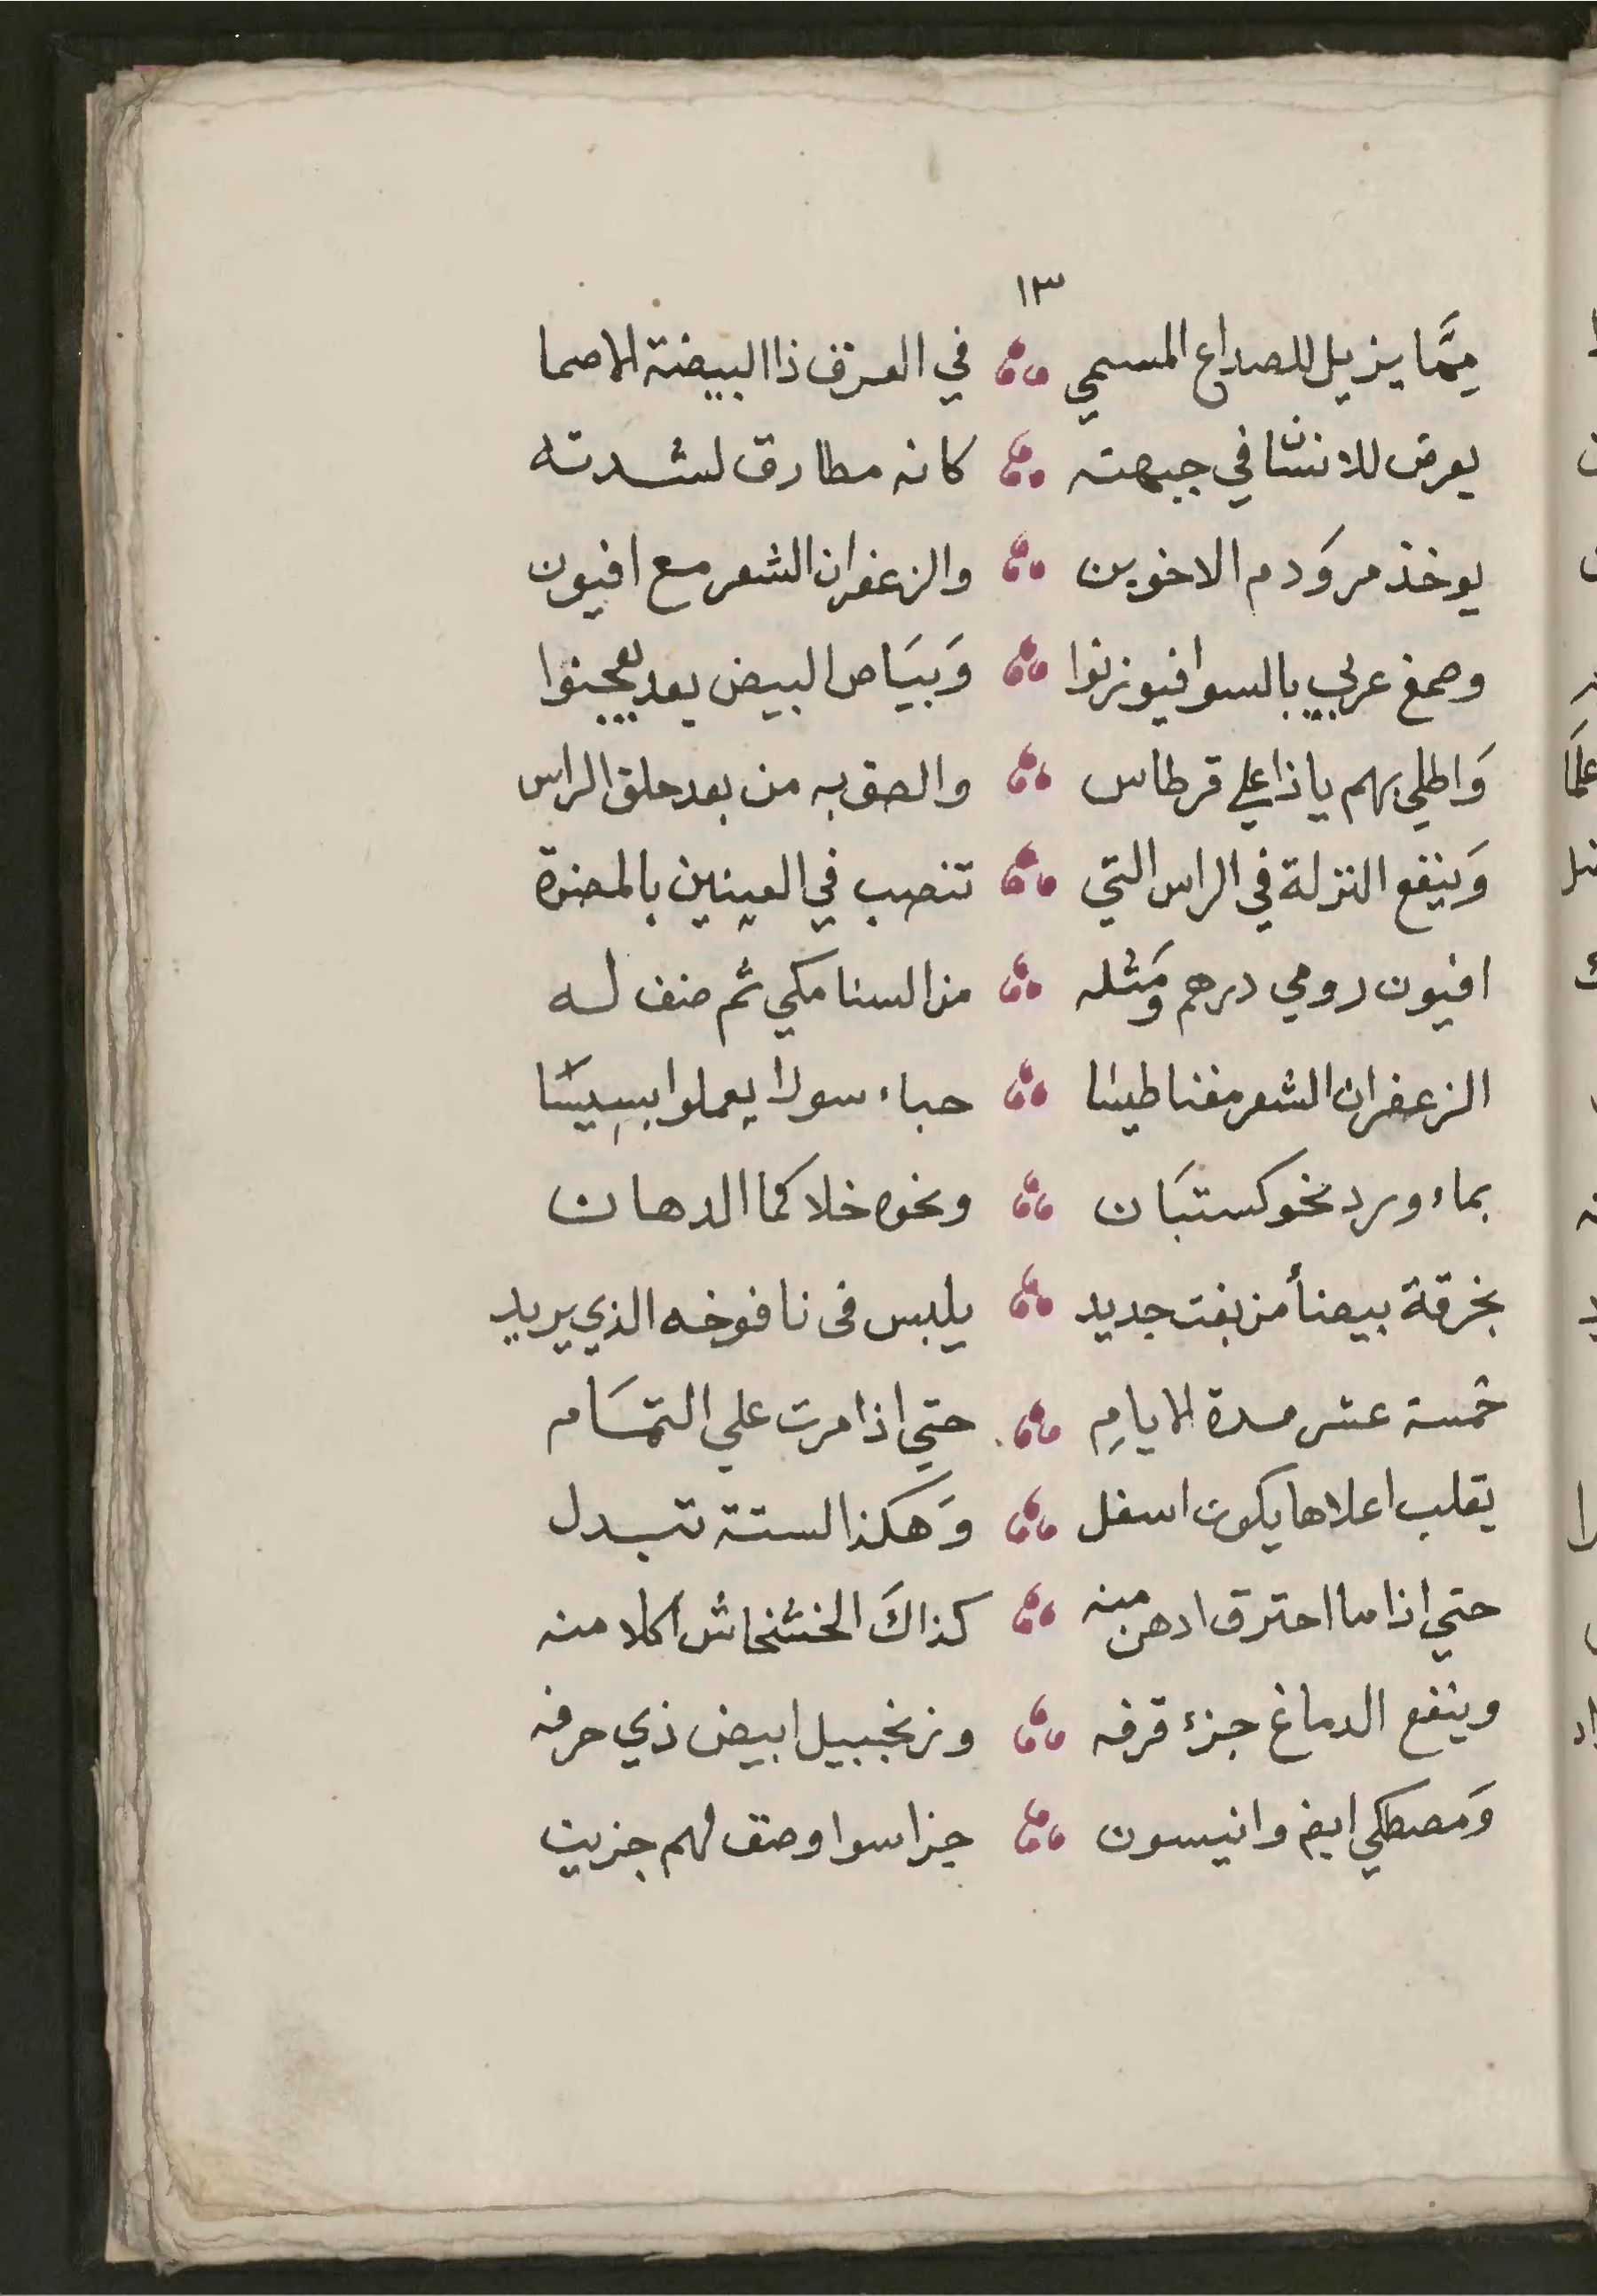 ١٣
مِمَّا يزيل للصداع المسمي في العرف ذا البيضة الاصما
يعرض للانسان في جبهته كانه مطارق لشدته
يوخذ مر وَدم الاخوين والزعفران الشعر مع افيون
وصمغ عربي بالسوا فيوزنوا وَبيَاض البيض بعد يعجنوا
وَاطلي بهم ياذا علي قرطاس والصق به من بعد حلق الراس
وَينفع النزلة في الراس التي تنصب في العينين بالمضرة
افيون رومي درهم وَمثله من السنا مكي ثم ضف له
الزعفران الشعر مغناطيسا حباء سولا يعملوا بسِيسَا
بماء ورد نحو كستبَان ونحوه خلا كما الدهان
بخرقة بيضأ من بفت جديد يلبس فى نافوخه الذي يريد
خمسة عشر مدة الايامِ حتي اذا مرت علي التمَام
يقلب اعلاها يكون اسفل وَهكذا الستة تبدل
حتي اذا ما احترق ادهن منه كذاكَ الخشخاش اكلا منه
وينفع الدماغ جزء قرفه وزنجبيل ابيض ذي حرفه
وَمصطكي ايض وانيسون جزا سوا وضف لهم جزيت